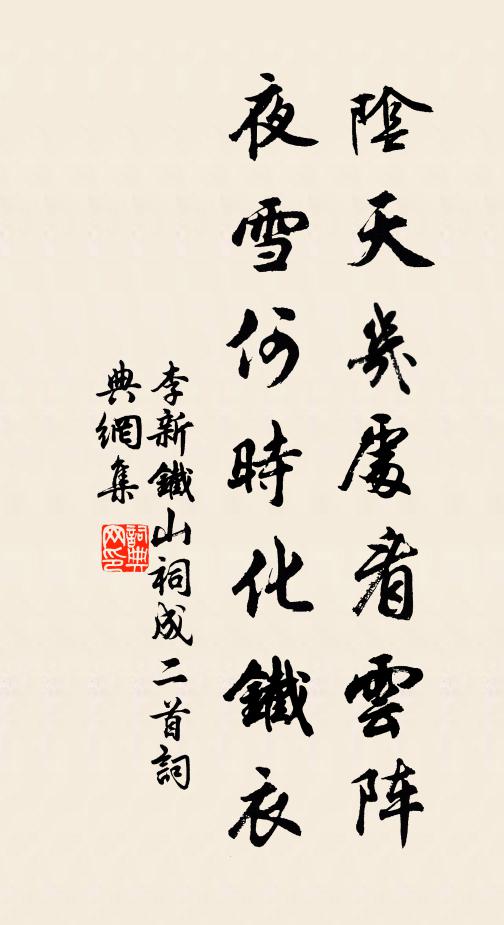 陰天幾處看雲阵
夜雪何時化鐵衣
李新鐵山祠成二首詞
典網集
詞典
网印